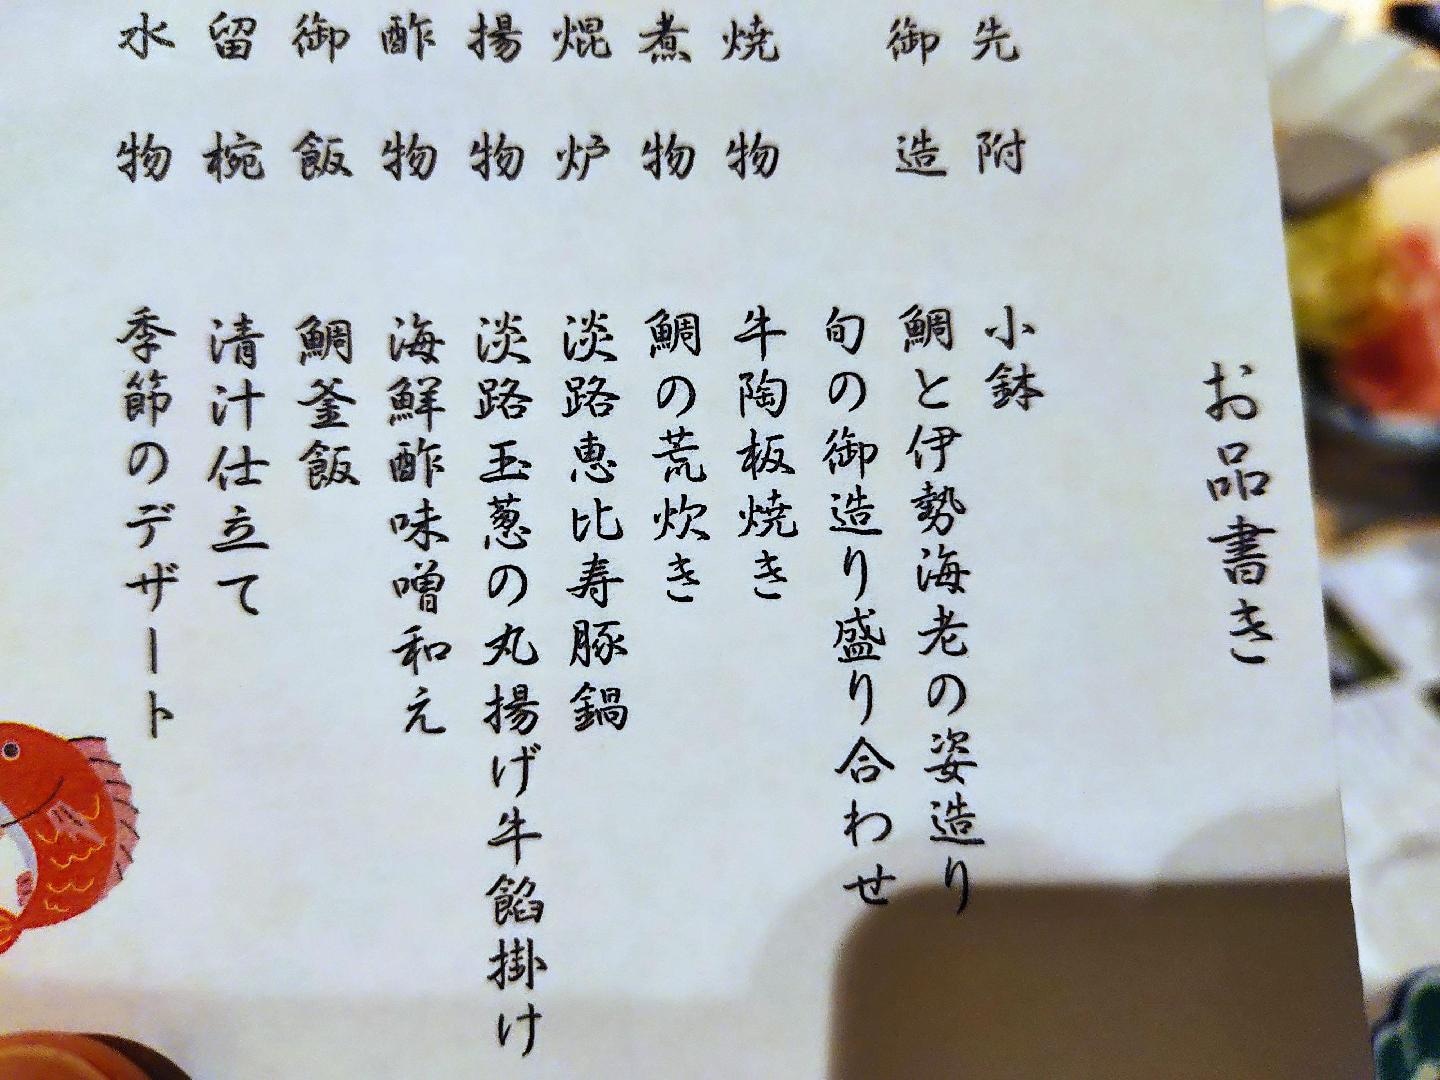 お品書き
先附 小鉢
御造 鯛と伊勢海老の姿造り
旬の御造り盛り合わせ
焼物 牛陶板焼き
煮物 鯛の荒炊き
焜炉 淡路恵比寿豚鍋
揚物 淡路玉葱の丸揚げ牛餡掛け
酢物 海鮮酢味噌和え
御飯 鯛釜飯
留椀 清汁仕立て
水物 季節のデザート